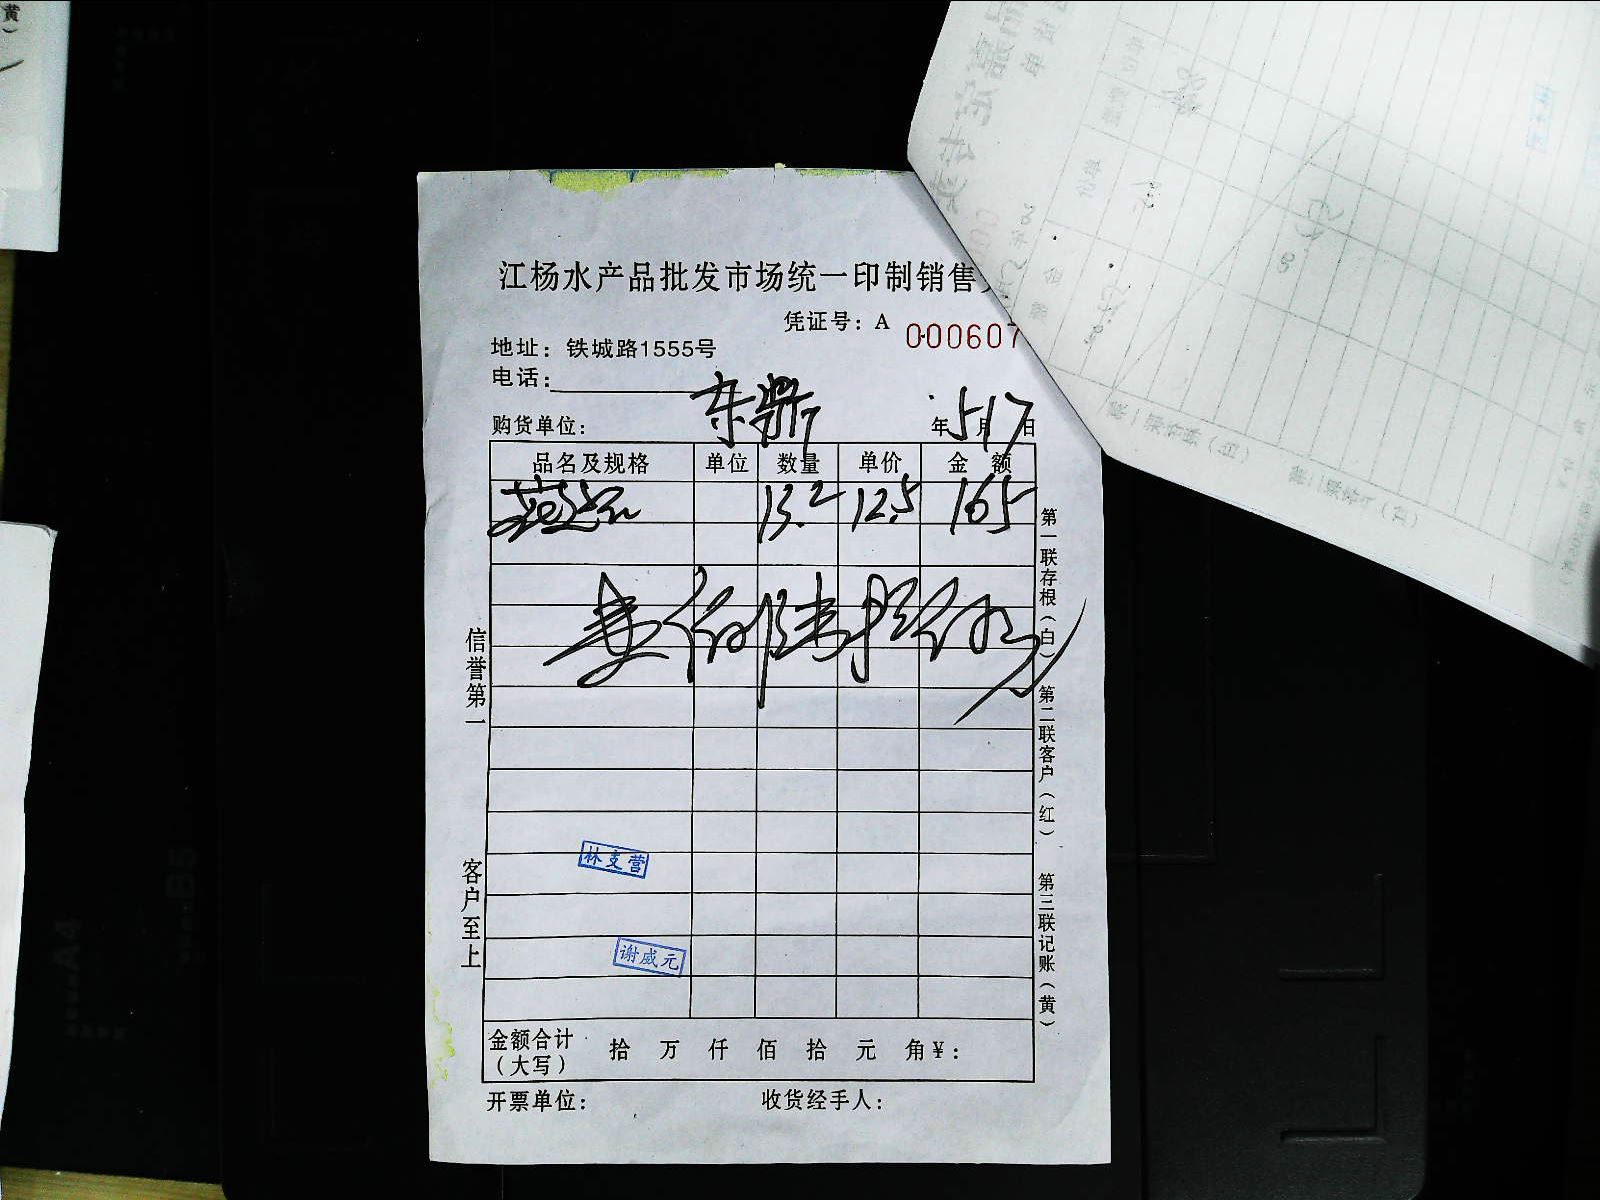 江杨水产品批发市场统一印制销售
凭证号：A 000607
地址：铁城路1555号
电话：
购货单位：东鼎 年5月17日
品名及规格 单位 数量 单价 金额
13.2 12.5 165
壹佰陆拾伍元
信誉第一
客户至上
第一联存根（白） 第二联客户（红） 第三联记账（黄）
林支营
谢威元
金额合计 拾 万 仟 佰 拾 元 角 ¥：
（大写）
开票单位： 收货经手人：